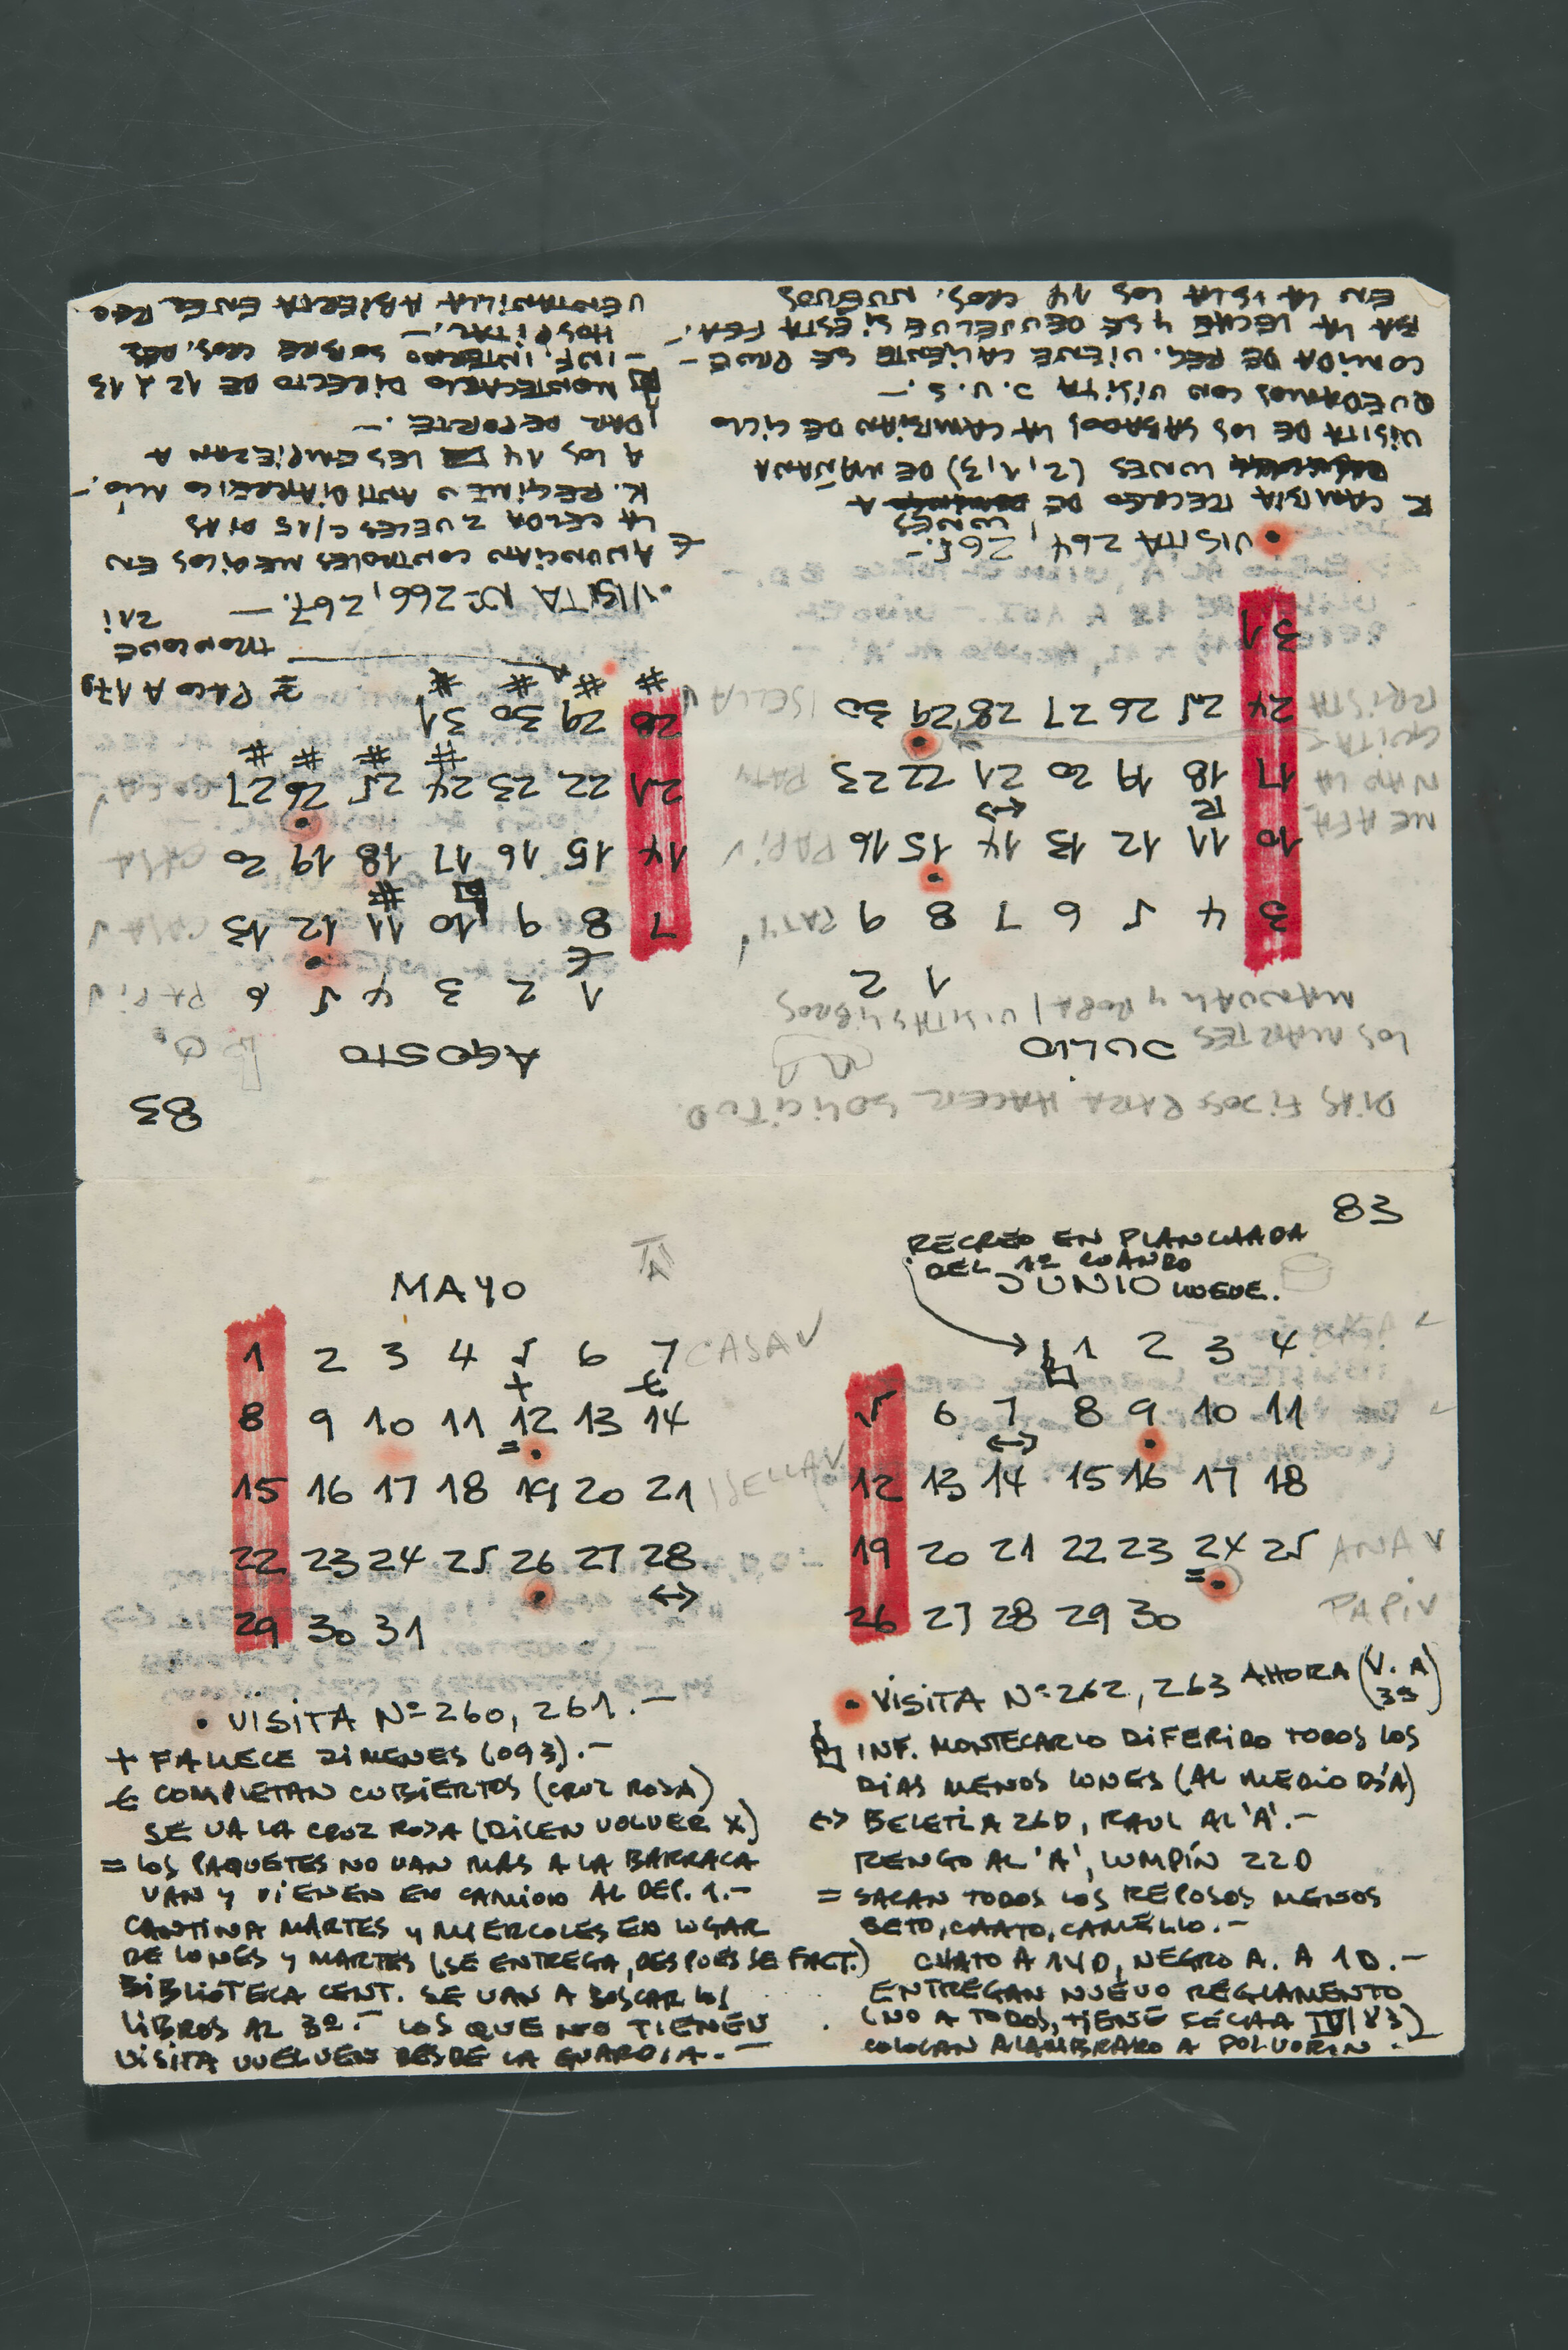 MAYO
1 2 3 4 5 6 7 CASA V
+ €
8 9 10 11 12 13 14
= •
15 16 17 18 19 20 21 ISELLA V
22 23 24 25 26 27 28
• ↔
29 30 31
• VISITA Nº 260, 261.—
+ FALLECE JIMENES (093).—
€ COMPLETAN CUBIERTOS (CRUZ ROJA)
SE VA LA CRUZ ROJA (DICEN VOLVER X)
= LOS PAQUETES NO VAN MAS A LA BARRACA
VAN Y VIENEN EN CAMION AL DEP. 1.—
CANTINA MARTES Y MIERCOLES EN LUGAR
DE LUNES Y MARTES (SE ENTREGA, DESPUES SE FACT.)
BIBLIOTECA CENT. SE VAN A BUSCAR LOS
LIBROS AL 3º.— LOS QUE NO TIENEN
VISITA VUELVEN DESDE LA GUARDIA.—
83
RECREO EN PLANCHADA
DEL 1º CUANDO
LLUEVE.
JUNIO
1 2 3 4
5 6 7 8 9 10 11
↔ •
12 13 14 15 16 17 18
19 20 21 22 23 24 25 ANA V
= •
26 27 28 29 30 PAPI V
• VISITA Nº 262, 263 AHORA (V. A 39)
INF. MONTECARLO DIFERIDO TODOS LOS
DIAS MENOS LUNES (AL MEDIO DÍA)
↔ BELETI A 26D, RAUL AL 'A'.—
RENGO AL 'A', LUMPÍN 22D
= SACAN TODOS LOS REPOSOS MENOS
BETO, CHATO, CAMELLO.—
CHATO A 14D, NEGRO A. A 1D.—
ENTREGAN NUEVO REGLAMENTO
(NO A TODOS, TIENE FECHA IV/83)
COLOCAN ALAMBRADO A POLVORIN.—
DIAS FIJOS PARA HACER SOLICITUD
LOS MARTES
MANUAL Y ROPA / VISITAS LIBROS
JULIO
1 2
3 4 5 6 7 8 9 PATY
•
10 11 12 13 14 15 16 PAPI V
R ↔
17 18 19 20 21 22 23 PATY
•
24 25 26 27 28 29 30 ISELLA V
31
• VISITA 264, 265.—
R CAMBIA RECREO DE LUNES A
LUNES (2,1,3) DE MAÑANA
VISITA DE LOS SABADOS LA CAMBIAN DE CICLO
QUEDAMOS CON VISITA J.V.S.—
COMIDA DE REG. VIENE CALIENTE SE PRUE-
BA LA LECHE Y SE DEVUELVE SI ESTÁ FEA.
EN LA ISLA LOS 14 CROS. NUEVOS
83
AGOSTO
1 2 3 4 5 6 PAPI V
€ •
7 8 9 10 11 12 13 CASA V
#
14 15 16 17 18 19 20 CASA
•
21 22 23 24 25 26 27
# # # #
28 29 30 31
# # # #
= PACO A 17D
• VISITA Nº 266, 267.—
€ ANUNCIAN CONTROLES MEDICOS EN
LA CELDA 2 VECES C/15 DIAS
K. REGIMEN ANTIDIARREICO MIO.—
A LOS 14 LES EMPIEZAN A
DAR DEPORTE.—
MONTECARLO DIRECTO DE 12 A 13
- INF. INTERNO SOBRE CROS. DEL
HOSPITAL.—
VENTANILLA ABIERTA EN EL REC